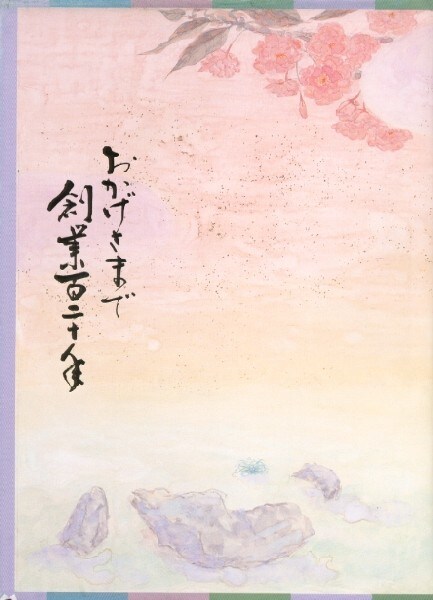 おかげさまで
創業百二十年